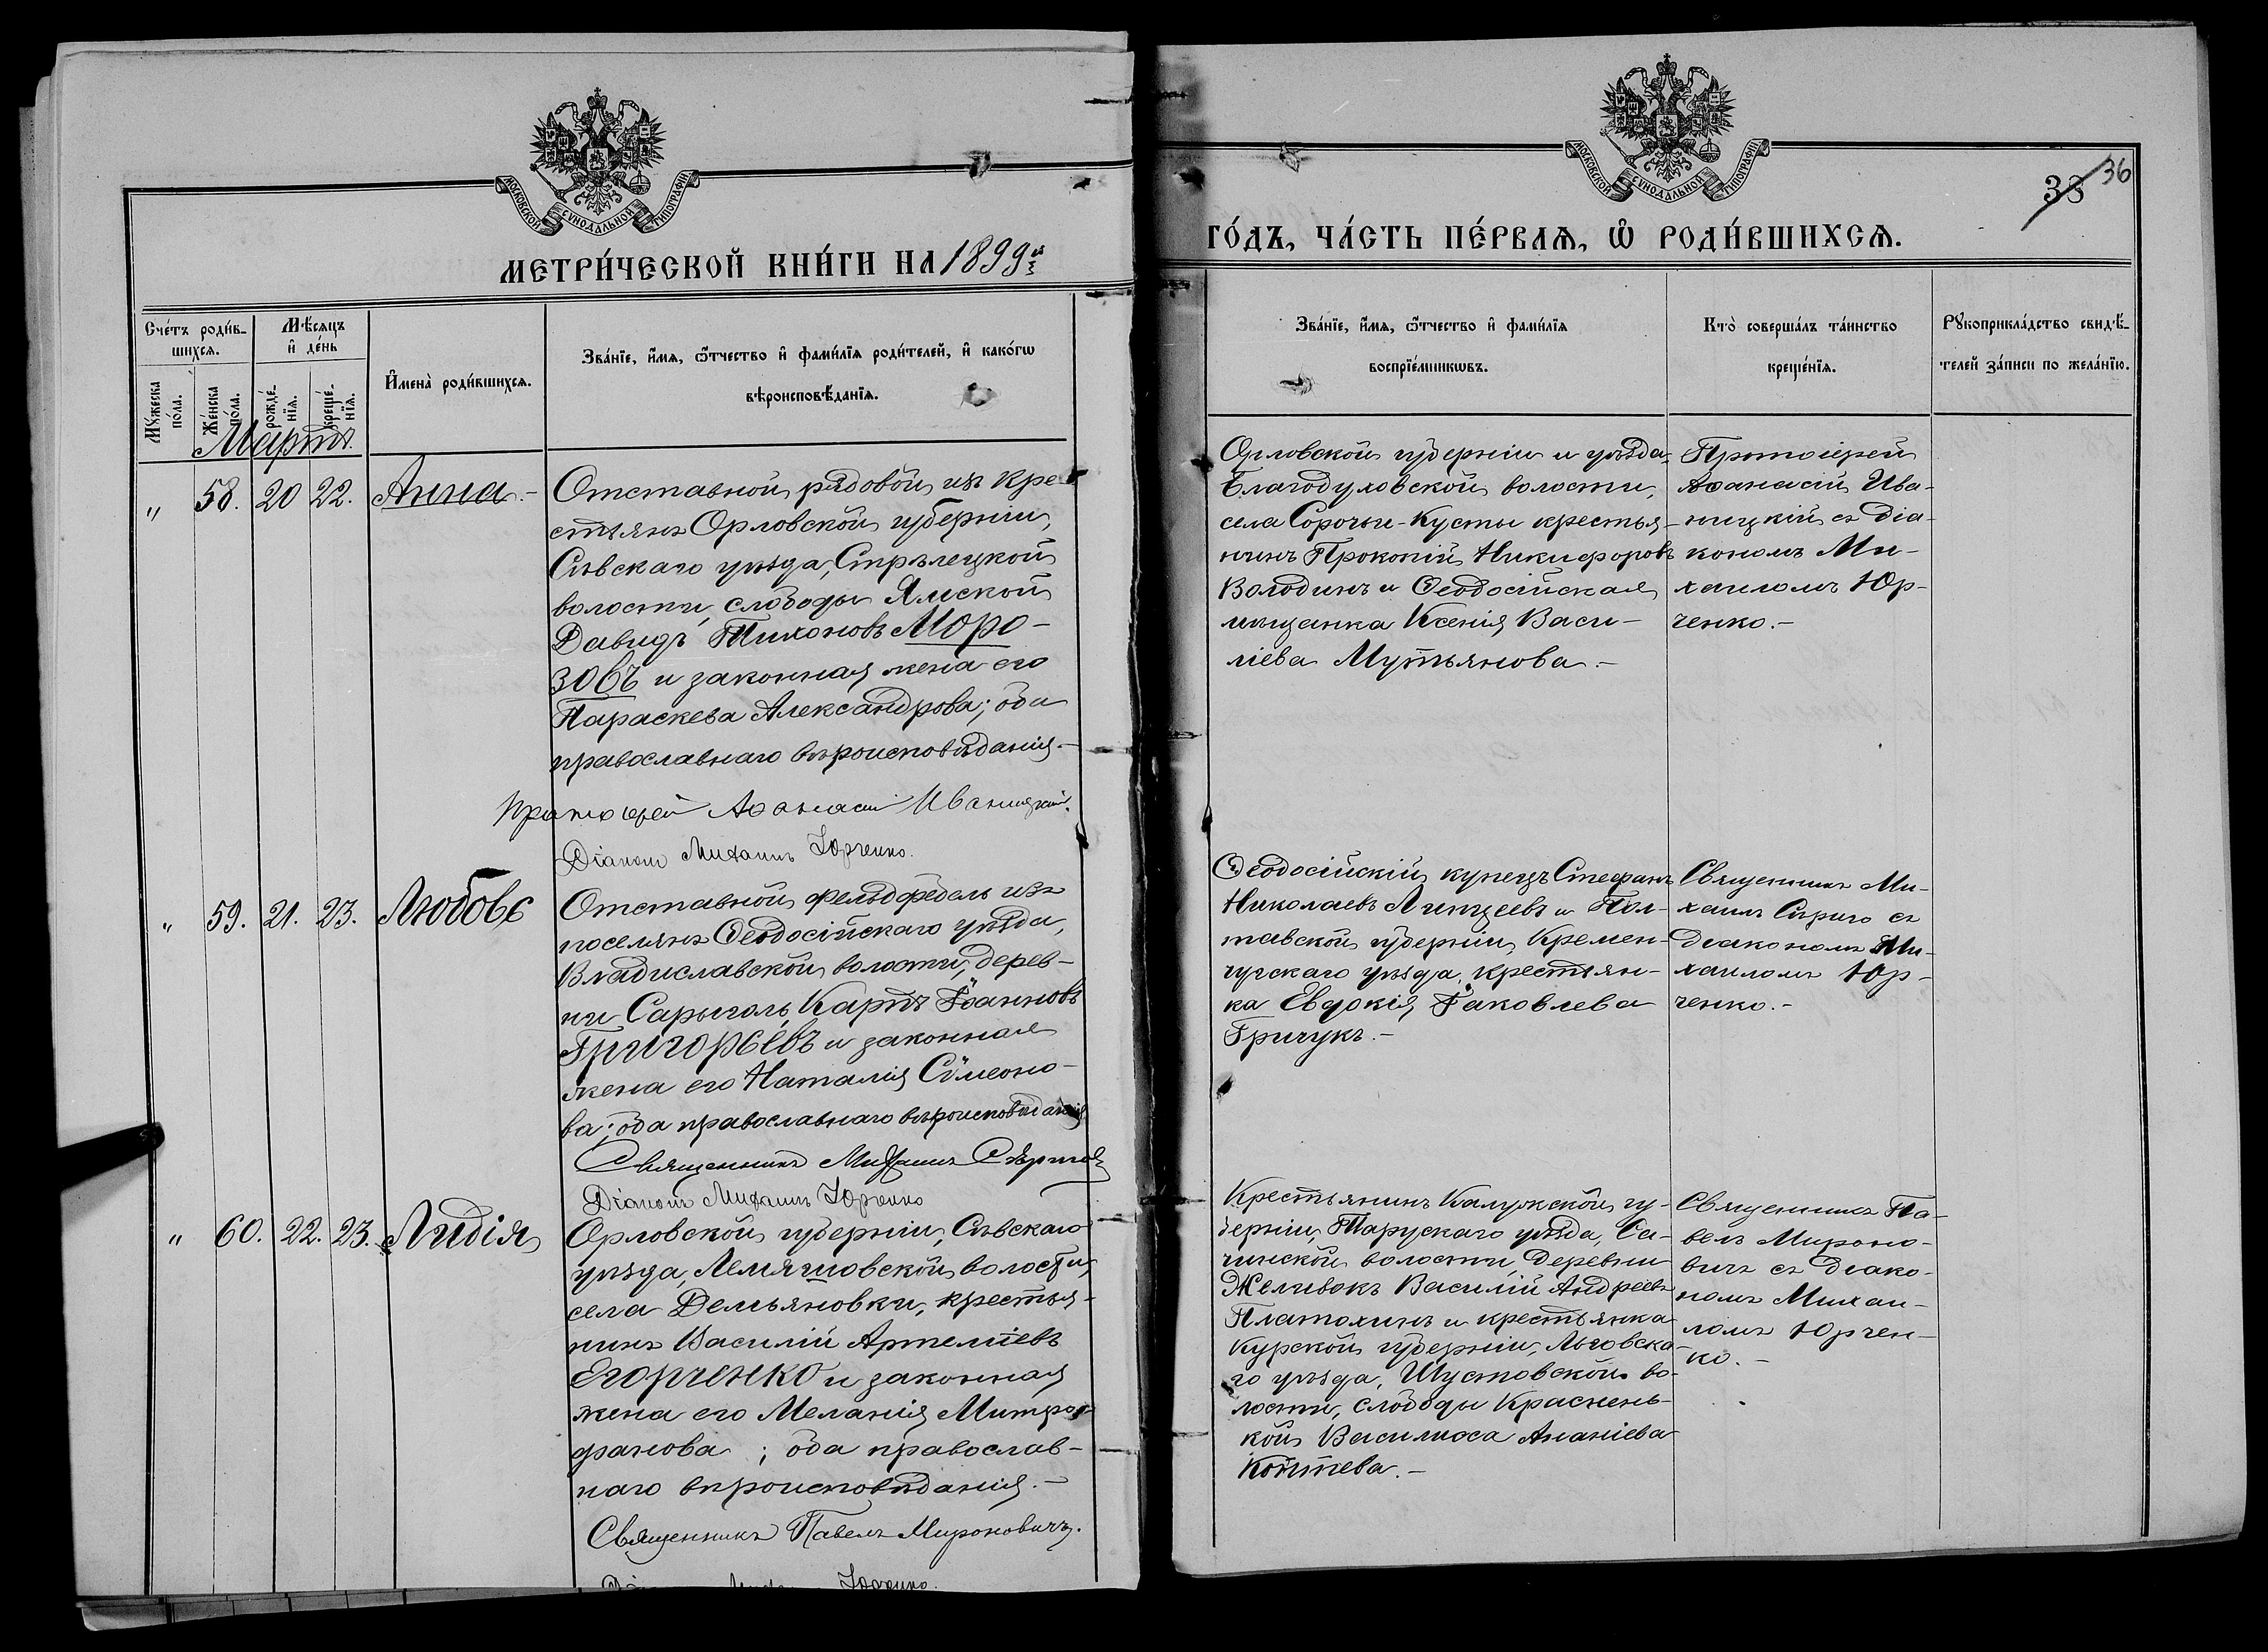 МОСКОВСКОЙ СѴНОДАЛЬНОЙ ТИПОГРАФІИ
МЕТРИ́ЧЕСКОЙ КНИ́ГИ НА 1899й
Сче́тъ роди́в-
шихсѧ.
Мѣ́сѧцъ
и҆ де́нь
Мꙋ́жеска
по́ла.
Же́нска
по́ла.
рожде́-
нїѧ.
креще́-
нїѧ.
И҆мена̀ роди́вшихсѧ.
Зва́нїе, и҆́мѧ, ѻ҆́тчество и҆ фами́лїѧ роди́телей, и҆ како́гѡ
вѣроисповѣ́данїѧ.
Мартъ.
" 58. 20 22. Анна.-
Отставной рядовой изъ кре-
стьянъ Орловской губерніи,
Сѣвскаго уѣзда, Стрѣлецкой
волости, слободы Ямской
Давидъ Тихоновъ Моро-
зовъ и законная жена его
Параскева Александрова; оба
православнаго вѣроисповѣданія.-
Протоіерей Аѳанасій Иваницкій.
Діаконъ Михаилъ Юрченко.
" 59. 21. 23. Любовь
Отставной фельдфебель изъ
поселянъ Ѳеодосійскаго уѣзда,
Владиславской волости, дерев-
ни Сарыголь, Карпъ Іоанновъ
Григорьевъ и законная
жена его Наталія Сѵмеоно-
ва; оба православнаго вѣроисповѣданія
Священникъ Михаилъ Сѣриго
Діаконъ Михаилъ Юрченко
" 60. 22. 23. Лидія
Орловской губерніи, Сѣвскаго
уѣзда, Лемяшовской волости,
села Демьяновки, крестья-
нинъ Василій Артеміевъ
Егорченко и законная
жена его Меланія Митро-
фанова ; оба православ-
наго вѣроисповѣданія.-
Священникъ Павелъ Мироновичъ.
Юрченко.
МОСКОВСКОЙ СѴНОДАЛЬНОЙ ТИПОГРАФІИ
33 36
ГО́ДЪ, ЧА́СТЬ ПЕ́РВАѦ, Ѡ҆ РОДИ́ВШИХСѦ.
Зва́нїе, и҆́мѧ, ѻ҆́тчество и҆ фами́лїѧ
воспрїе́мникѡвъ.
Кто̀ соверша́лъ та́инство
креще́нїѧ.
Рꙋкоприкла́дство свидѣ́-
телей за́писи по жела́нїю.
Орловской губерніи и уѣзда,
Благодуховской волости,
села Сорочьи-Кусты крестья-
нинъ Прокопій Никифоровъ
Володинъ и Ѳеодосійская
мѣщанка Ксенія Васи-
ліева Мутьянова.-
Протоіерей
Аѳанасій Ива-
ницкій съ діа-
кономъ Ми-
хаиломъ Юр-
ченко.-
Ѳеодосійскій купецъ Стефанъ
Николаевъ и Пол-
тавской губерніи, Кремен-
чугскаго уѣзда, крестьян-
ка Евдокія Іаковлева
Гричукъ.-
Священникъ Ми-
хаилъ Сѣриго съ
діакономъ Ми-
хаиломъ Юр-
ченко.-
Крестьянинъ Калужской гу-
берніи, Тарускаго уѣзда, Са-
чинской волости, деревни
Желивокъ Василій Андреевъ
Платохинъ и крестьянка
Курской губерніи, Льговска-
го уѣзда, Шустовской во-
лости, слободы Краснень-
кой Василиса Ананіева
Коптева.-
Священникъ Па-
велъ Мироно-
вичъ съ діако-
номъ Михаи-
ломъ Юрчен-
ко.-